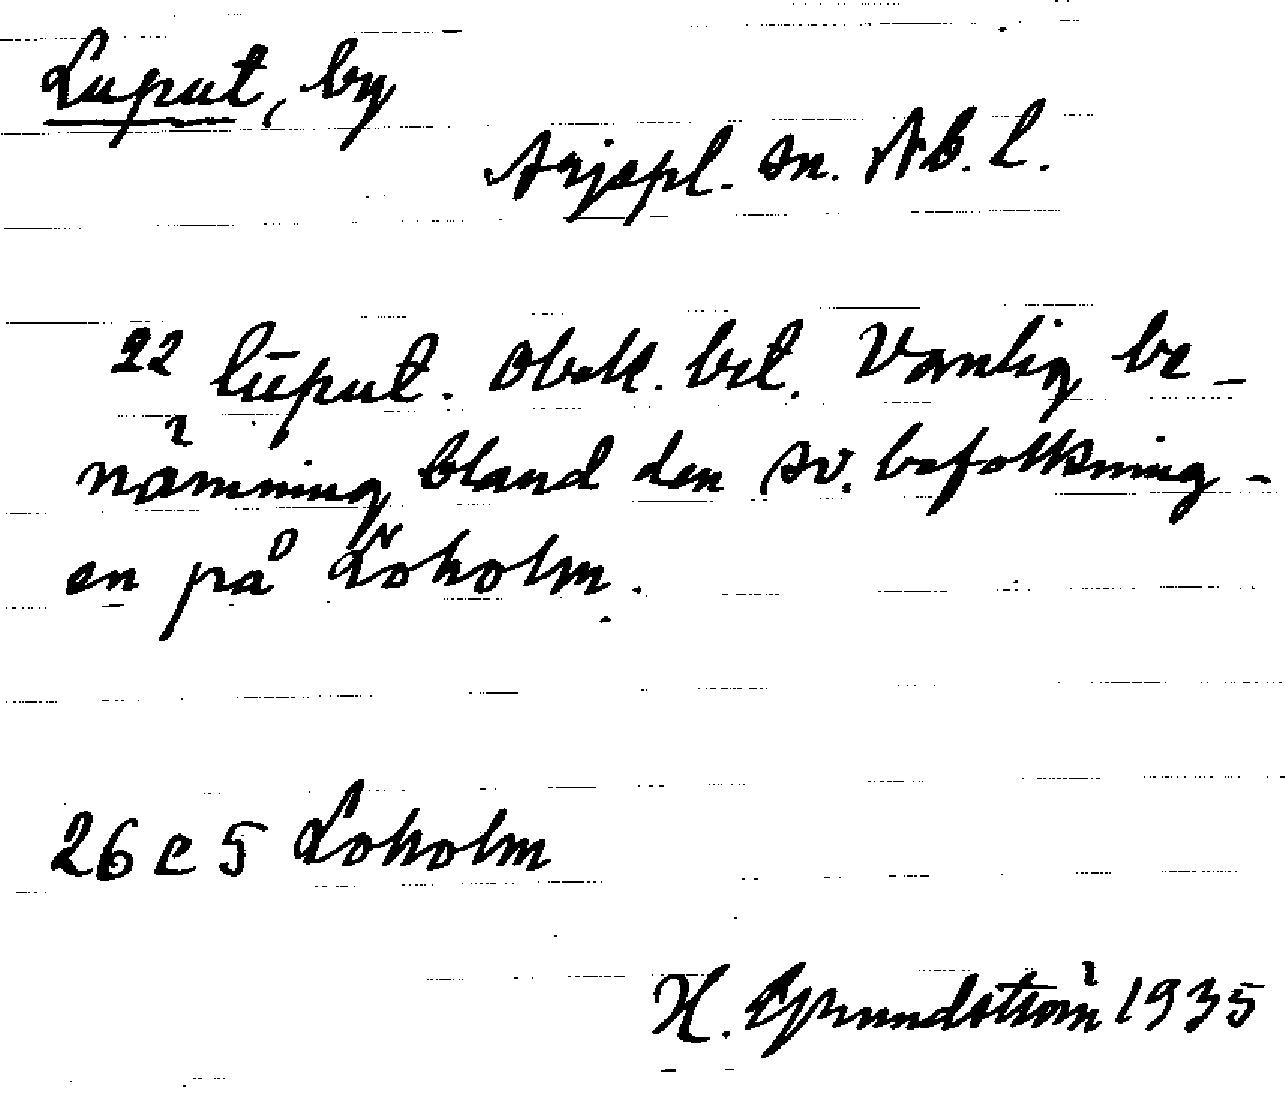 Luput, by
Arjepl. sn. Nb. l.
22 lüput. Obek. bet. Vanlig be-
nämning bland den sv. befolkning-
en på Löholm.
26 c 5 Loholm
H. Grundström 1935